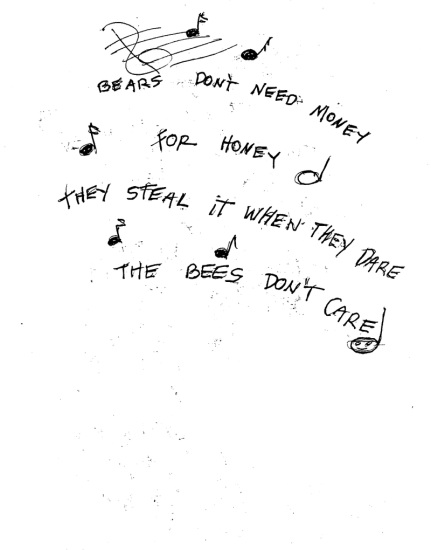 BEARS DON'T NEED MONEY
FOR HONEY
THEY STEAL IT WHEN THEY DARE
THE BEES DON'T CARE